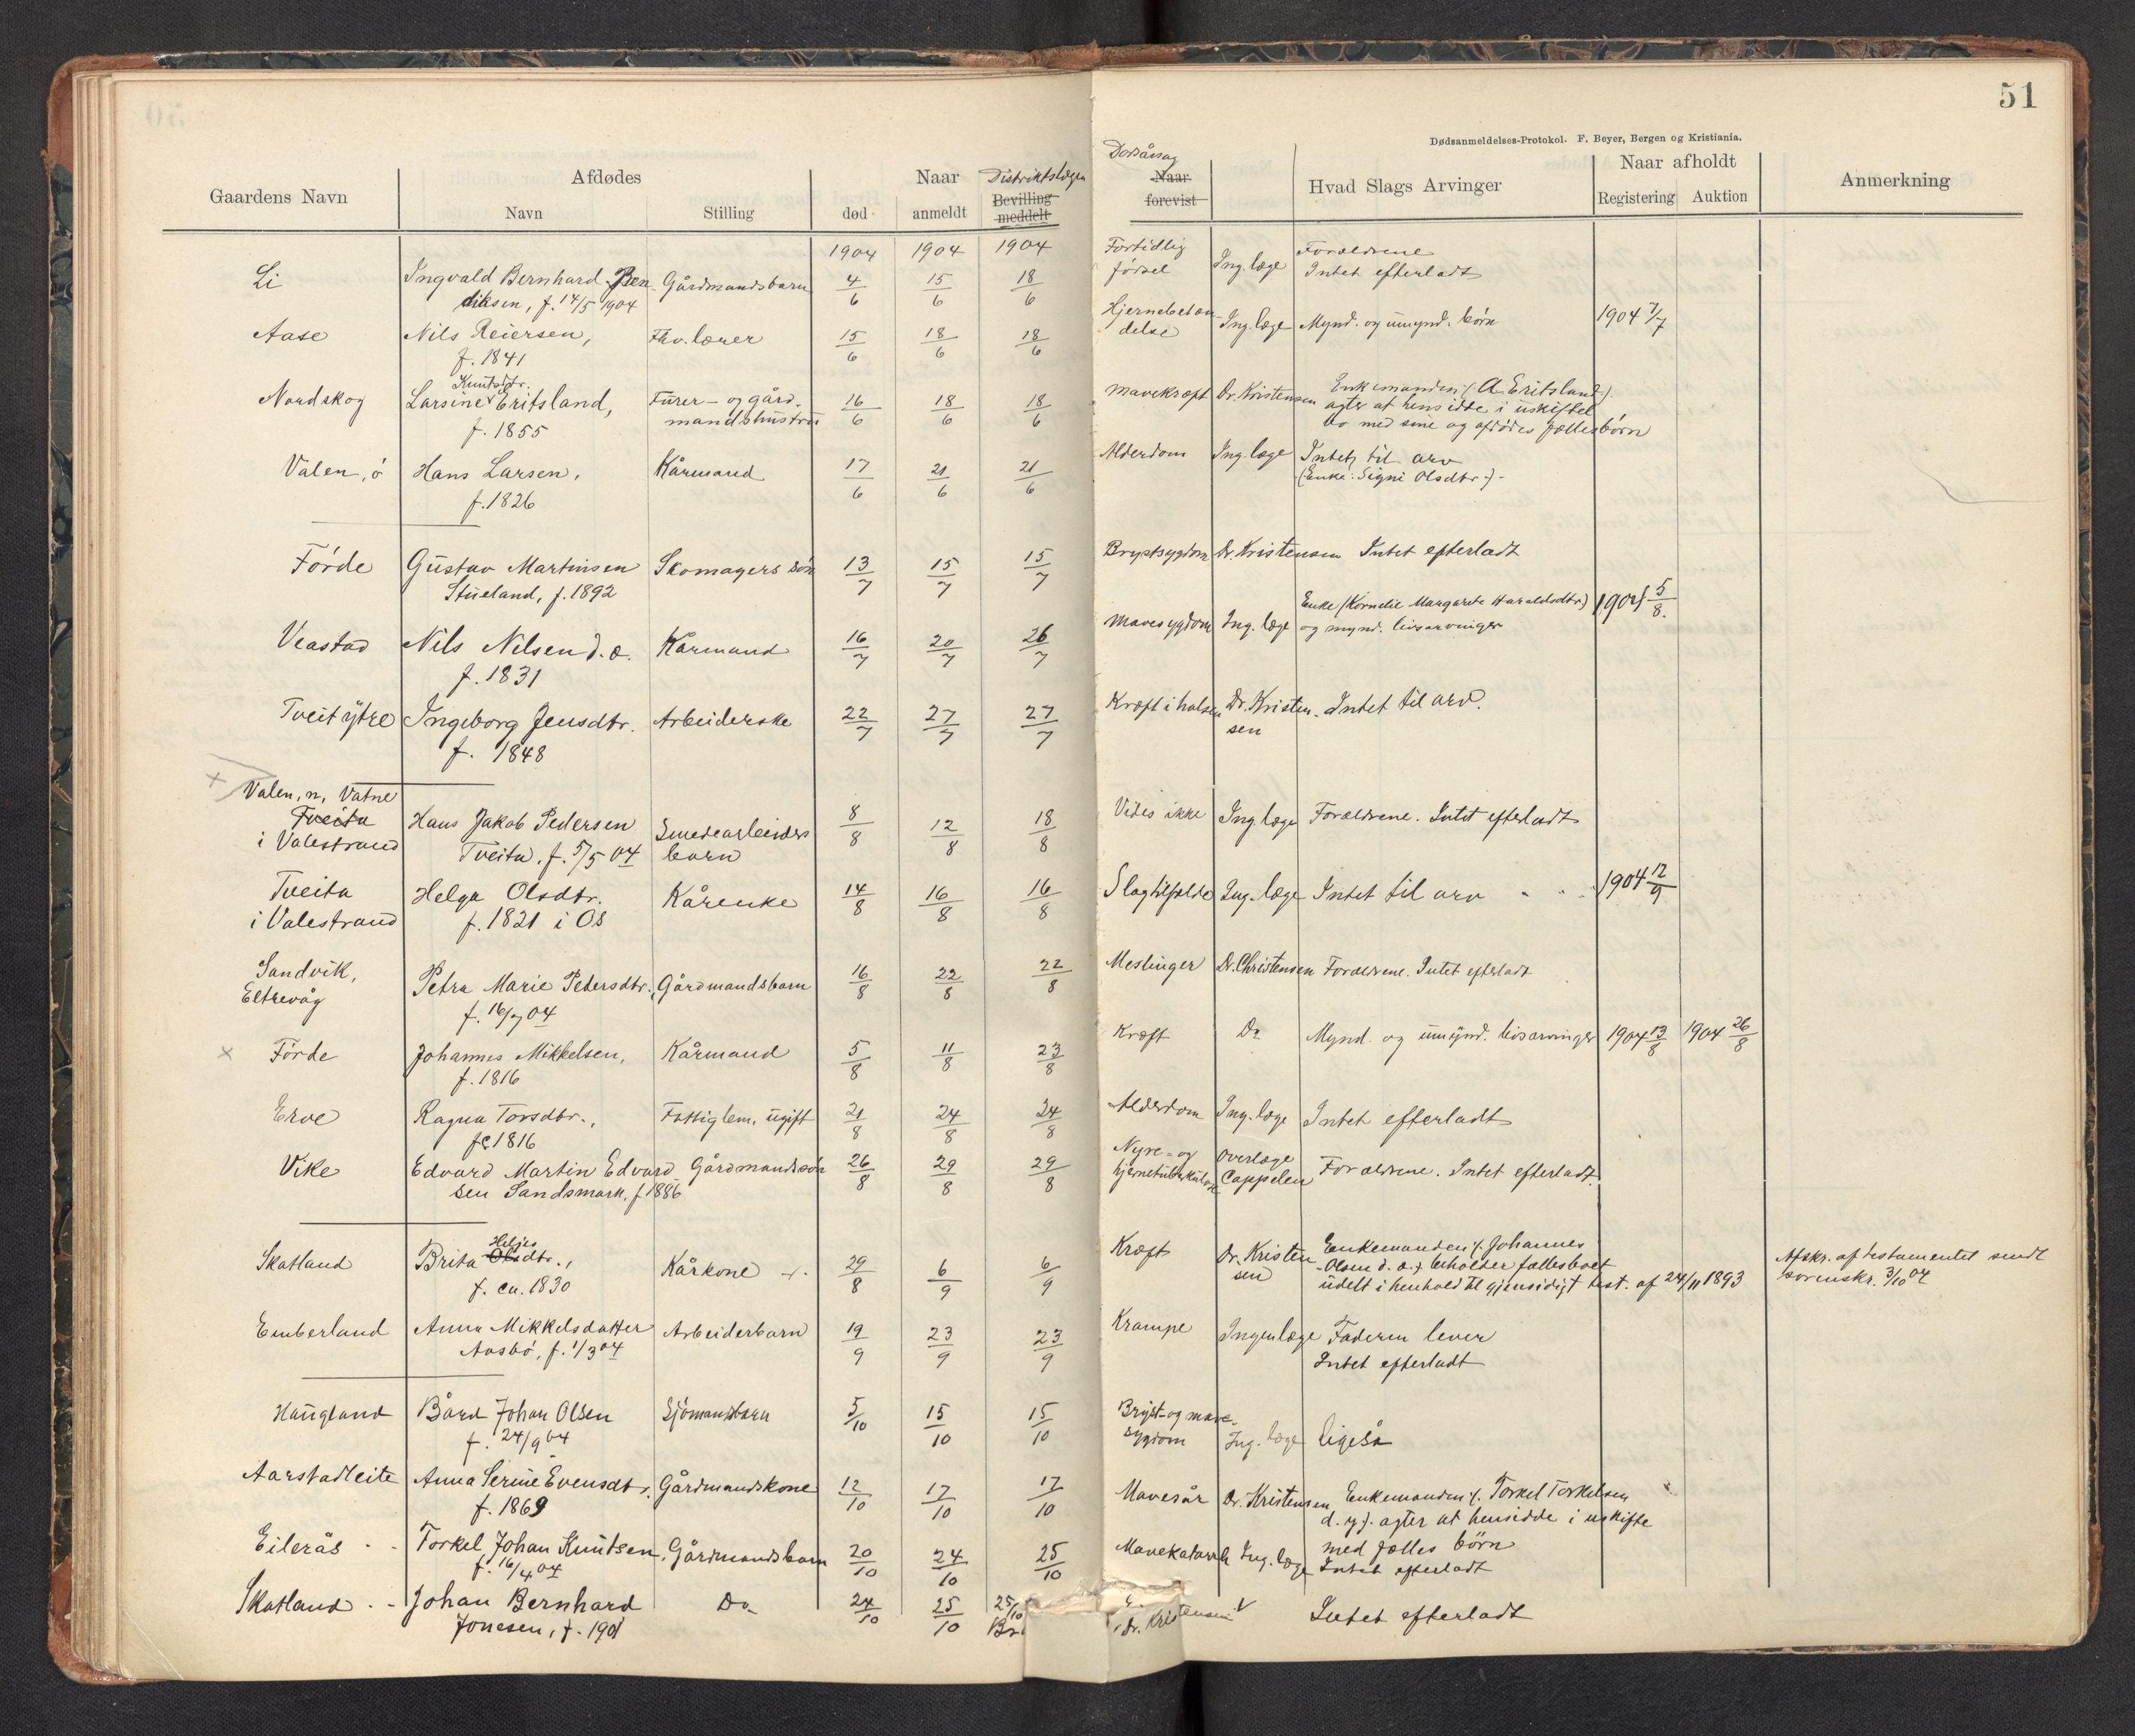 51
Dødsanmeldelses-Protokol. F. Beyer, Bergen og Kristiania.
Gaardens Navn | Afdødes | Naar | Distriktslægen | Dødsårsag | Hvad Slags Arvinger | Naar afholdt | Anmerkning
Navn | Stilling | død | anmeldt | Bevilling meddelt | Naar forevist | Registering | Auktion
1904 | 1904 | 1904
Li | Ingvald Bernhard Ben- | Gårdmandsbarn | 4/6 | 15/6 | 18/6 | Fortidlig | Ing. læge | Forældrene
diksen, f. 14/5 1904 | fødsel | Intet efterladt
Aase | Nils Reiersen, | Fhv. lærer | 15/6 | 18/6 | 18/6 | Hjernebetæn- | Ing. læge | Mynd. og umynd. børn | 1904 7/7
f. 1841 | delse
Knutsdtr.
Nordskog | Larsine Eritsland, | Furer- og gård- | 16/6 | 18/6 | 18/6 | Mavekræft | Dr. Kristensen | Enkemanden /: A. Eritsland :/
f. 1855 | mandshustru | agter at hensidde i uskiftet
bo med sine og afdødes fællesbørn
Valen, ö | Hans Larsen, | Kårmand | 17/6 | 21/6 | 21/6 | Alderdom | Ing. læge | Intet til arv
f. 1826 | (Enke: Signi Olsdtr.)
Förde | Gustav Martinsen | Skomagers sön | 13/7 | 15/7 | 15/7 | Brystsygdom | Dr. Kristensen | Intet efterladt
Stueland, f. 1892
Veastad | Nils Nilsen d. æ. | Kårmand | 16/7 | 20/7 | 26/7 | Mavesygdom | Ing. læge | Enke (Kornelie Margarete Haraldsdtr.) | 1904 5/8.
f. 1831 | og mynd. livsarvinger
Tveit ytre | Ingeborg Jensdtr. | Arbeiderske | 22/7 | 27/7 | 27/7 | Kræft i halsen | Dr. Kristen- | Intet til arv.
f. 1848 | sen
x Valen, n, Vatne
Tveita | Hans Jakob Pedersen | Smedearbeiders | 8/8 | 12/8 | 18/8 | Vides ikke | Ing. læge | Forældrene. Intet efterladt
i Valestrand | Tveita, f. 5/5 04 | barn
Tveita | Helga Olsdtr. | Kårenke | 14/8 | 16/8 | 16/8 | Slagtilfælde | Ing. læge | Intet til arv | 1904 12/9
i Valestrand | f. 1821 i Os
Sandvik, | Petra Marie Petersdtr., | Gårdmandsbarn | 16/8 | 22/8 | 22/8 | Meslinger | Dr. Christensen | Forældrene. Intet efterladt
Eltrevåg | f. 16/7 04
x Förde | Johannes Mikkelsen, | Kårmand | 5/8 | 11/8 | 23/8 | Kræft | Do | Mynd. og umynd. livsarvinger | 1904 13/8 | 1904 26/8
f. 1816
Erve | Ragna Torsdtr., | Fattiglem, ugift | 21/8 | 24/8 | 24/8 | Alderdom | Ing. læge | Intet efterladt
f. 1816
Vike | Edvard Martin Edvard- | Gårdmandssön | 26/8 | 29/8 | 29/8 | Nyre- og | Overlæge | Forældrene. Intet efterladt.
sen Sandsmark, f. 1886 | hjernetuberkulose | Cappelen
Heljes
Skatland | Brita Olsdtr., | Kårkone | 29/8 | 6/9 | 6/9 | Kræft | Dr. Kristen- | Enkemanden /: Johannes | Afskr. af testamentet sendt
f. ca. 1830 | sen | Olsen d. æ. :/ beholder fællesboet | sorenskr. 3/10 04
udelt i henhold til gjensidigt test. af 24/11 1893
Emberland | Anna Mikkelsdatter | Arbeiderbarn | 19/9 | 23/9 | 23/9 | Krampe | Ingen læge | Faderen lever
Aasbö, f. 1/3 04 | Intet efterladt
Haugland | Bård Johan Olsen | Sjömandsbarn | 5/10 | 15/10 | 15/10 | Bryst- og mave-
f. 24/9 04 | sygdom | Ing. læge | ligeså
Aarstadleite | Anna Serine Evensdtr. | Gårdmandskone | 12/10 | 17/10 | 17/10 | Mavesår | Dr. Kristensen | Enkemanden /: Torkel Torkelsen
f. 1869 | d. y. :/ agter at hensidde i uskifte
med fælles børn
Eilerås | Torkel Johan Knutsen, | Gårdmandsbarn | 20/10 | 24/10 | 25/10 | Mavekatarrh | Ing. læge | Intet efterladt
f. 16/4 04
Skatland | Johan Bernhard | Do | 24/10 | 25/10 | 25/10 | Dr. Kristensen | Intet efterladt
Jonesen, f. 1901 | Br